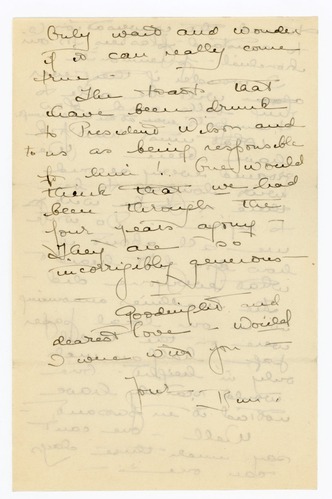 Only wait and wonder
if it can really come
true -
The toasts that
have been drunk
to President Wilson and
to us as being responsible
for him! One would
think that we had
been through the
four years agony -
They are so
incorrigibly generous -
Goodnight and
dearest love - Would
I were with you
Your -